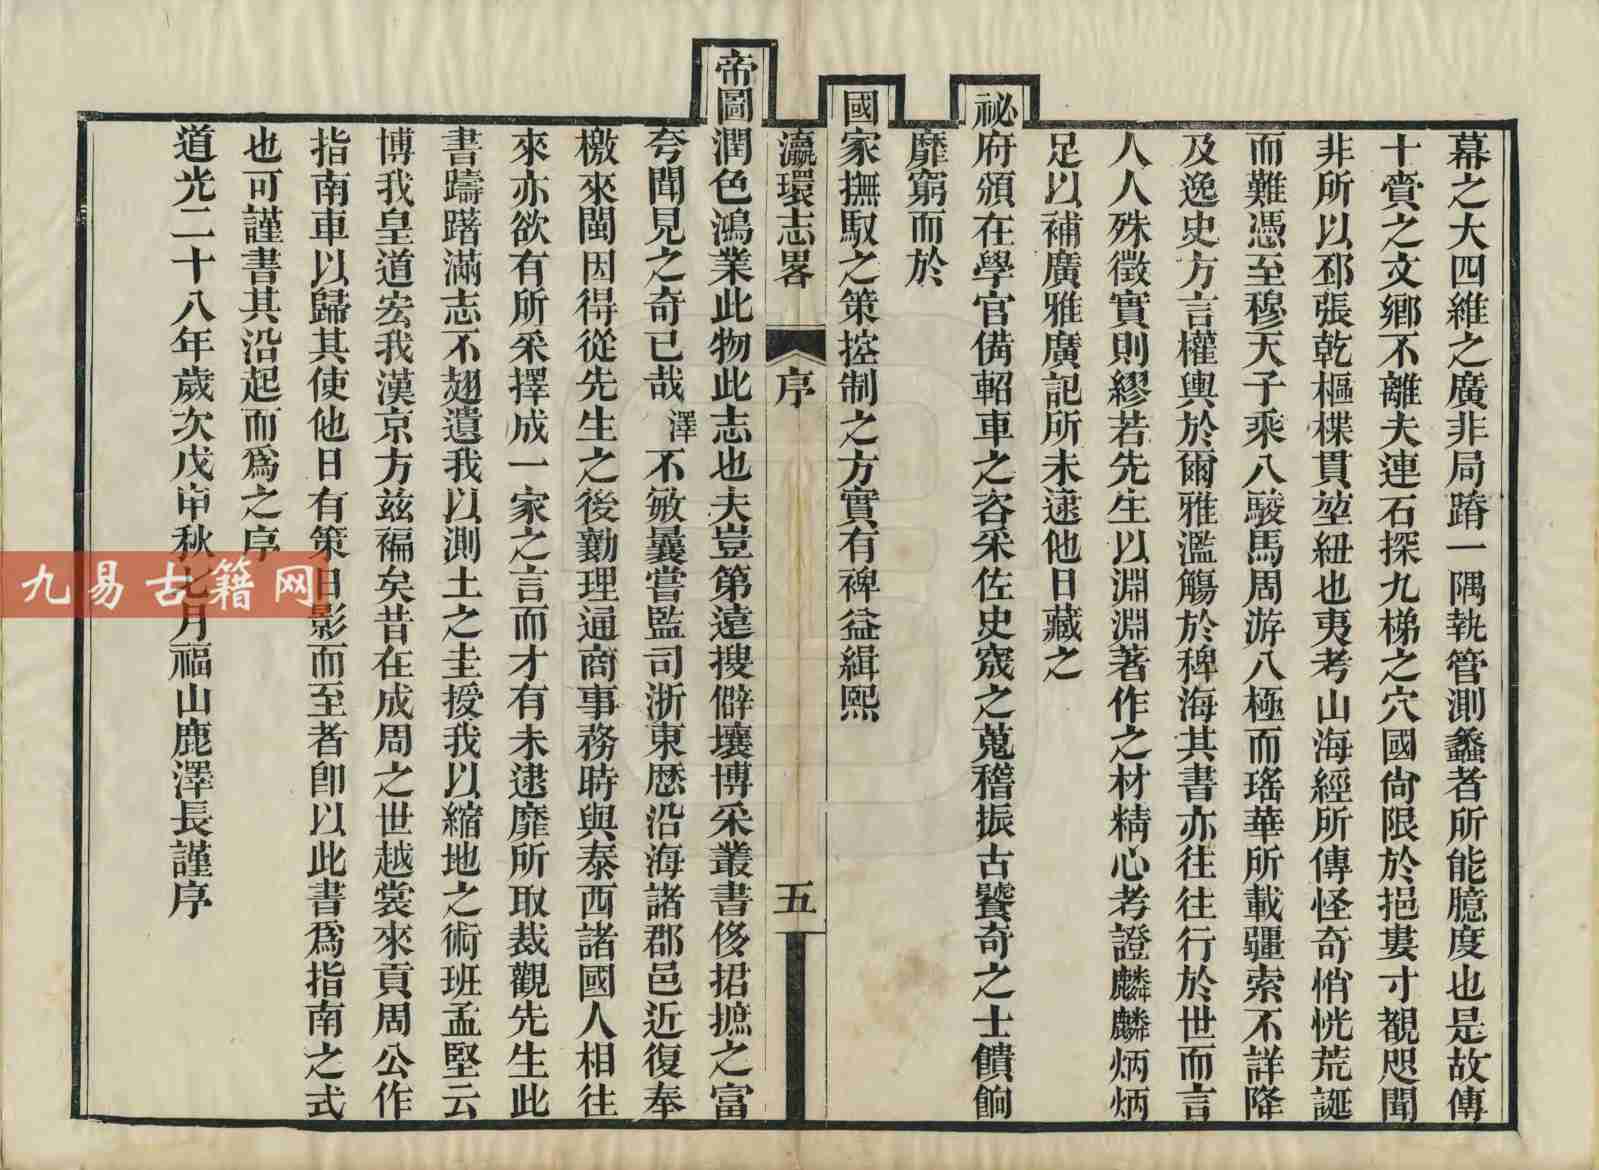 幕之大四維之廣非局蹐一隅執管測蠡者所能臆度也是故傳
十賚之文鄉不離夫連石探九梯之穴國尙限於挹婁寸覩咫聞
非所以邳張乾樞楪貫堃紐也夷考山海經所傳怪奇悄恍荒誕
而難憑至穆天子乘八駿馬周游八極而瑤華所載疆索不詳降
及逸史方言權輿於爾雅濫觴於稗海其書亦往往行於世而言
人人殊徵實則繆若先生以淵淵著作之材精心考證麟麟炳炳
足以補廣雅廣記所未逮他日藏之
祕府頒在學官備軺車之咨采佐史宬之蒐稽振古饕奇之士饋餉
靡窮而於
國家撫馭之策控制之方實有裨益緝熙
瀛環志畧 序 五
帝圖潤色鴻業此物此志也夫豈第遠搜僻壤博采叢書侈捃摭之富
夸聞見之奇已哉澤不敏曩嘗監司浙東歷沿海諸郡邑近復奉
檄來閩因得從先生之後勷理通商事務時與泰西諸國人相往
來亦欲有所采擇成一家之言而才有未逮靡所取裁觀先生此
書躊躇滿志不翅遺我以測土之圭授我以縮地之術班孟堅云
博我皇道宏我漢京方茲褊矣昔在成周之世越裳來貢周公作
指南車以歸其使他日有策日影而至者卽以此書爲指南之式
也可謹書其沿起而爲之序
道光二十八年歲次戊申秋七月福山鹿澤長謹序
九易古籍网